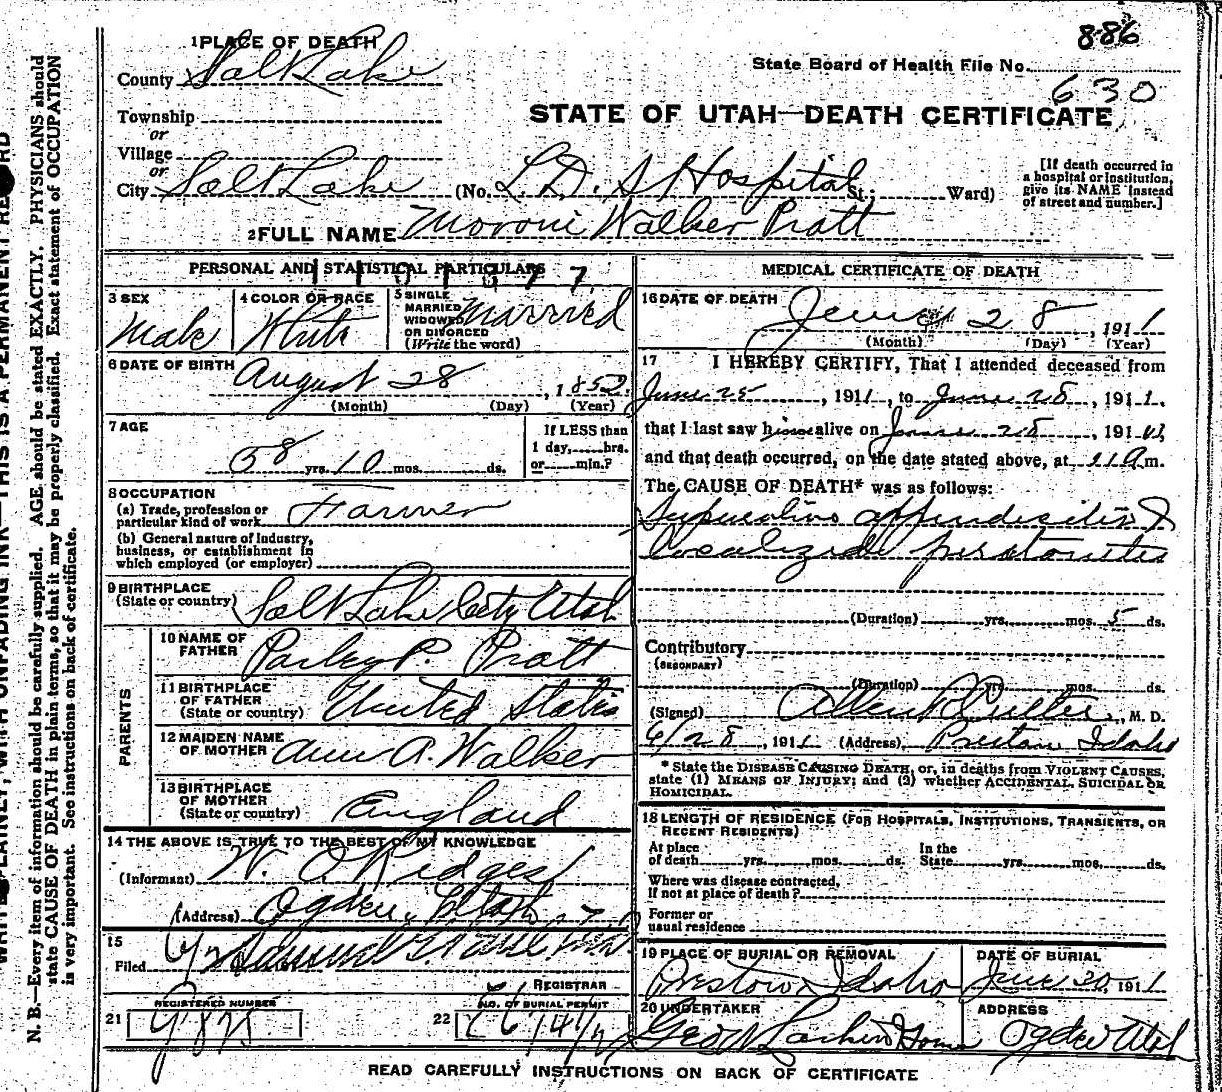 886
State Board of Health File No. 630
STATE OF UTAH—DEATH CERTIFICATE
1 PLACE OF DEATH
County Salt Lake
Township
or
Village
or
City Salt Lake (No. L. D. S Hospital St.; Ward)
[If death occurred in a hospital or institution, give its NAME instead of street and number.]
2 FULL NAME Moroni Walker Pratt
PERSONAL AND STATISTICAL PARTICULARS
3 SEX
Male
4 COLOR OR RACE
White
5 SINGLE MARRIED WIDOWED OR DIVORCED (Write the word)
Married
6 DATE OF BIRTH
August 28, 1852
(Month) (Day) (Year)
7 AGE
58 yrs. 10 mos. ds.
If LESS than 1 day, hrs. or min.?
8 OCCUPATION
(a) Trade, profession or particular kind of work Farmer
(b) General nature of Industry, business, or establishment in which employed (or employer)
9 BIRTHPLACE
(State or country) Salt Lake City Utah
PARENTS
10 NAME OF FATHER Parley P. Pratt
11 BIRTHPLACE OF FATHER (State or country) United States
12 MAIDEN NAME OF MOTHER Ann A. Walker
13 BIRTHPLACE OF MOTHER (State or country) England
14 THE ABOVE IS TRUE TO THE BEST OF MY KNOWLEDGE
(Informant) W. O. Ridges
(Address) Ogden, Utah
15
Filed Samuel G.
REGISTRAR
REGISTERED NUMBER
21
NO. OF BURIAL PERMIT
22
MEDICAL CERTIFICATE OF DEATH
16 DATE OF DEATH
June 28, 1911
(Month) (Day) (Year)
17 I HEREBY CERTIFY, That I attended deceased from
June 25, 1911, to June 28, 1911,
that I last saw him alive on June 28, 191
and that death occurred, on the date stated above, at 11 a m.
The CAUSE OF DEATH* was as follows:
Supurative appendicitis &
localized peritonitis
(Duration) yrs. mos. 5 ds.
Contributory
(SECONDARY)
(Duration) yrs. mos. ds.
(Signed) Allen R Cutler, M. D.
6/28, 1911 (Address) Preston Idaho
* State the DISEASE CAUSING DEATH, or, in deaths from VIOLENT CAUSES, state (1) MEANS OF INJURY; and (2) whether ACCIDENTAL, SUICIDAL OR HOMICIDAL.
18 LENGTH OF RESIDENCE (FOR HOSPITALS, INSTITUTIONS, TRANSIENTS, OR RECENT RESIDENTS)
At place of death yrs. mos. ds. In the State yrs. mos. ds.
Where was disease contracted, if not at place of death?
Former or usual residence
19 PLACE OF BURIAL OR REMOVAL
Preston Idaho
DATE OF BURIAL
June 30, 1911
20 UNDERTAKER
Geo W Larkin & Sons
ADDRESS
Ogden Utah
READ CAREFULLY INSTRUCTIONS ON BACK OF CERTIFICATE
PLAINLY, WITH UNFADING INK—THIS IS A PERMANENT RECORD
N. B.—Every item of information should be carefully supplied. AGE should be stated EXACTLY. PHYSICIANS should
state CAUSE OF DEATH in plain terms, so that it may be properly classified. Exact statement of OCCUPATION
is very important. See instructions on back of certificate.